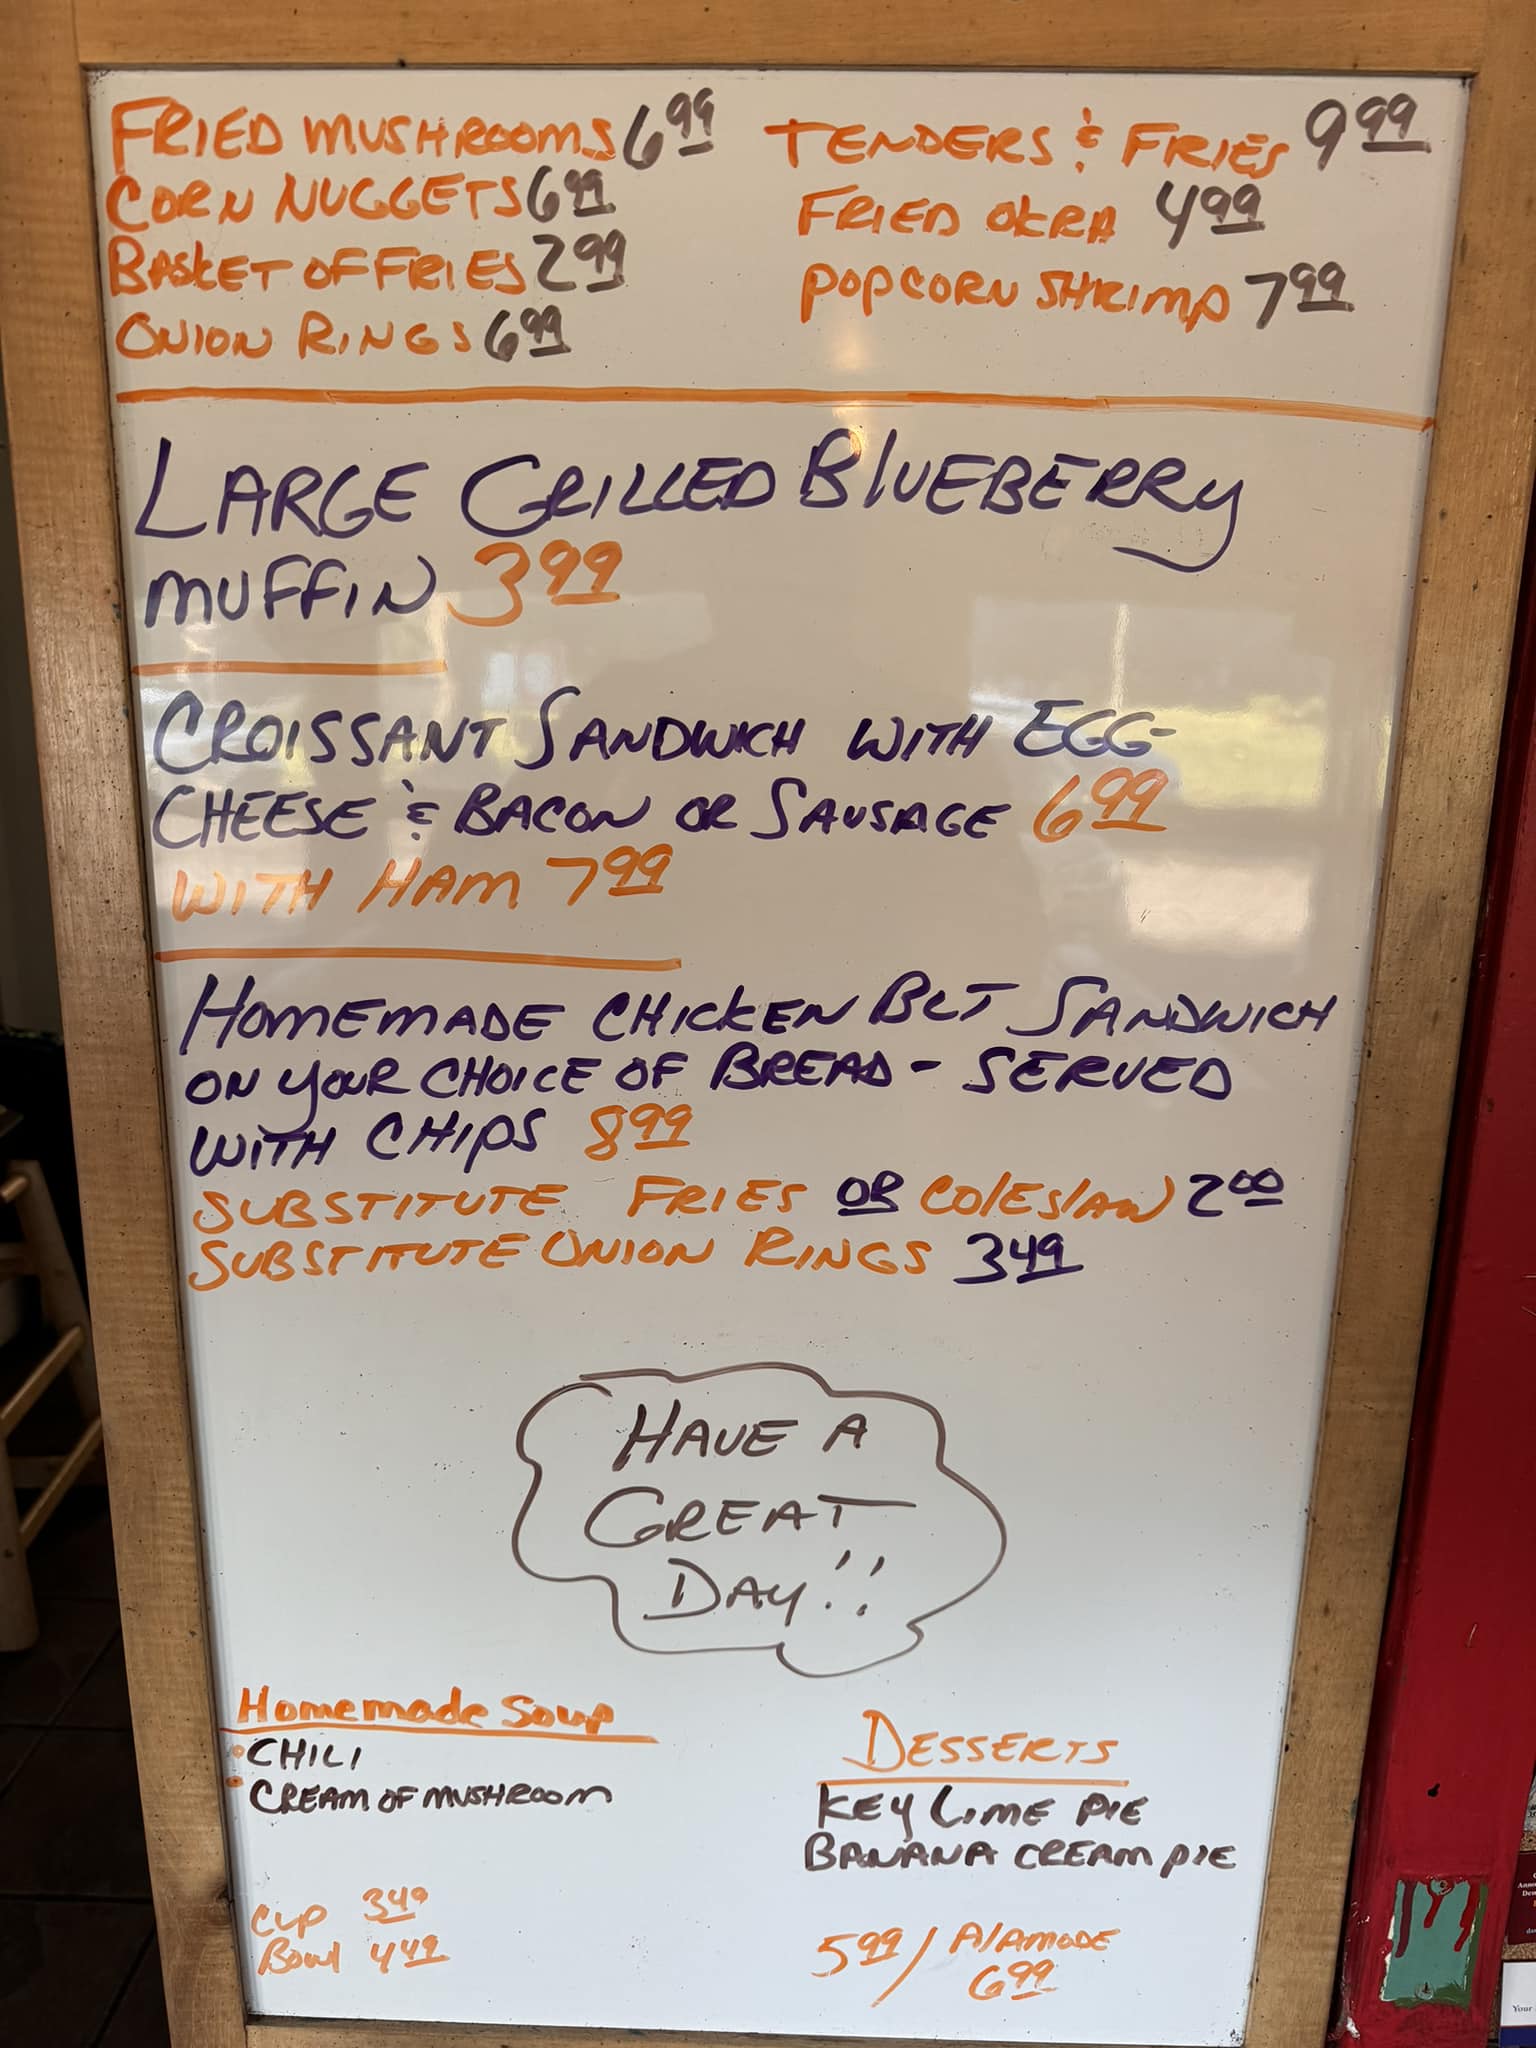 FRIED MUSHROOMS 6.99
CORN NUGGETS 6.99
BASKET OF FRIES 2.99
ONION RINGS 6.99
TENDERS & FRIES 9.99
FRIED OKRA 4.99
POPCORN SHRIMP 7.99
LARGE GRILLED BLUEBERRY
MUFFIN 3.99
CROISSANT SANDWICH WITH EGG-
CHEESE & BACON OR SAUSAGE 6.99
WITH HAM 7.99
HOMEMADE CHICKEN BLT SANDWICH
ON YOUR CHOICE OF BREAD - SERVED
WITH CHIPS 8.99
SUBSTITUTE FRIES OR COLESLAW 2.00
SUBSTITUTE ONION RINGS 3.49
HAVE A
GREAT
DAY!!
Homemade Soup
CHILI
CREAM OF MUSHROOM
CUP 3.49
Bowl 4.49
DESSERTS
KEY LIME PIE
BANANA CREAM PIE
5.99 / ALAMODE
6.99
Your